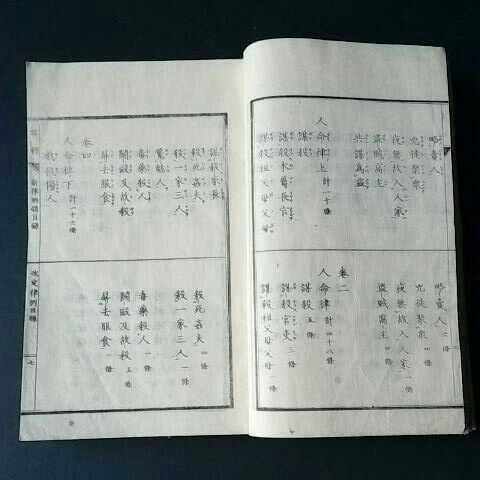 略賣人
兇徒聚衆
夜無故入人家
盜賊窩主
共謀爲盜
人命律上 計一十條
謀殺
謀殺本管官
謀殺祖父母父母
略賣人 一條
兇徒聚衆 四條
夜無故入人家 一條
盜賊窩主 四條
卷二
人命律 計四十八條
謀殺 五條
謀殺官吏 三條
謀殺祖父母父母 一條
謀殺家長
殺死姦夫
殺一家三人
毒藥殺人
鬪毆及故殺
屏去服食
卷四
人命律下 計一十六條
殺死姦夫 四條
殺一家三人 一條
毒藥殺人 一條
鬪毆及故殺 五條
屏去服食 一條
新律綱領目錄
改定律例目錄
七